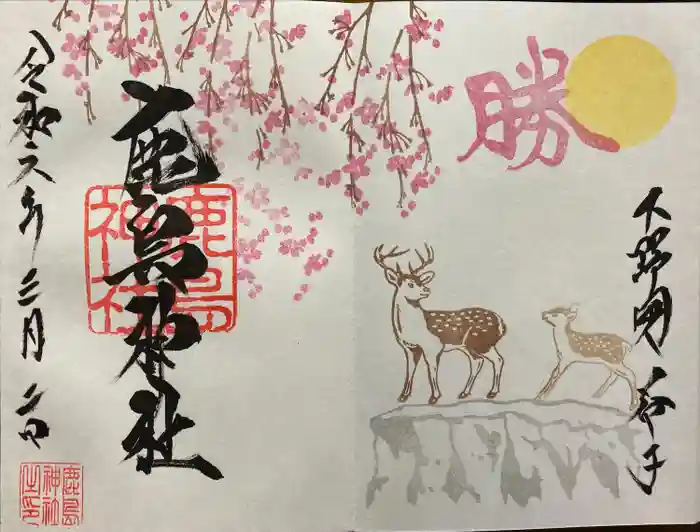 勝
大野
鹿島神社
鹿島
神社
令和六年三月二日
鹿島
神社
之印